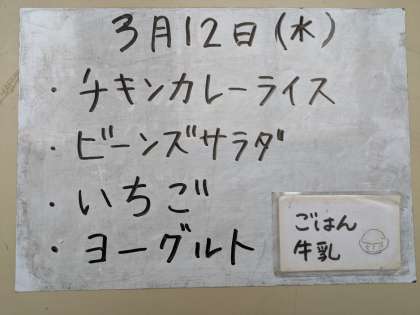 3月12日(水)
・チキンカレーライス
・ビーンズサラダ
・いちご
・ヨーグルト
ごはん
牛乳